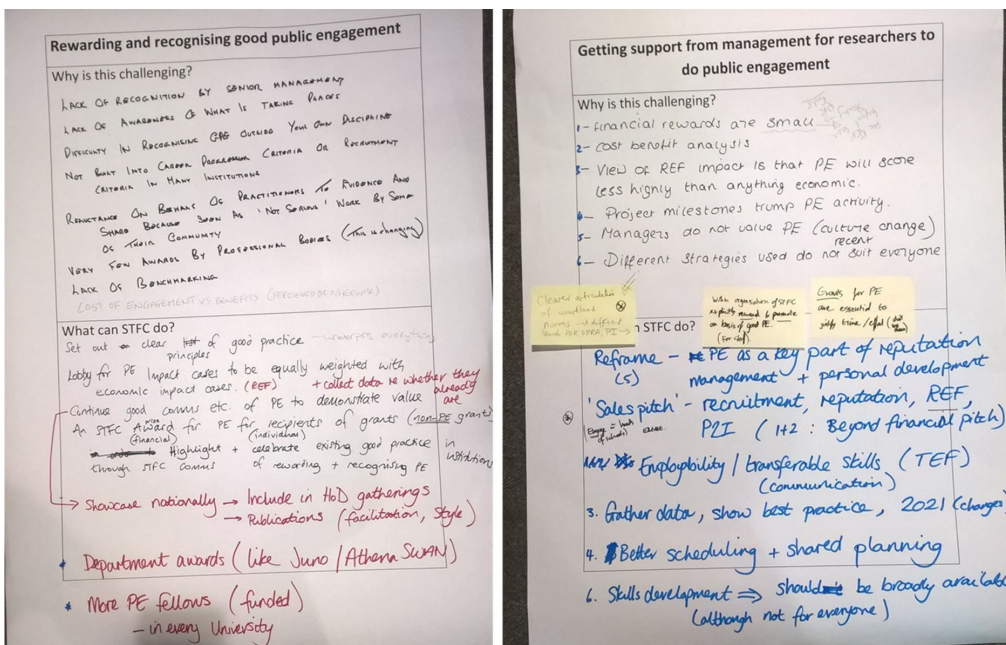 Rewarding and recognising good public engagement
Why is this challenging?
LACK OF RECOGNITION BY SENIOR MANAGEMENT
LACK OF AWARENESS OF WHAT IS TAKING PLACE
DIFFICULTY IN RECOGNISING GPE OUTSIDE YOUR OWN DISCIPLINE
NOT BUILT INTO CAREER PROGRESSION CRITERIA OR RECRUITMENT
CRITERIA IN MANY INSTITUTIONS
RELUCTANCE ON BEHALF OF PRACTITIONERS TO EVIDENCE AND
SHARE BECAUSE SEEN AS 'NOT SERIOUS' WORK BY SOME
OF THEIR COMMUNITY
VERY FEW AWARDS BY PROFESSIONAL BODIES (THIS is changing)
LACK OF BENCHMARKING
COST OF ENGAGEMENT VS BENEFITS (PERCEIVED OR OTHERWISE)
What can STFC do?
Set out clear of good practice - underpins everything
principles
Lobby for PE Impact cases to be equally weighted with
economic impact cases. (REF) + collect data re whether they
already are
Continue good comms etc. of PE to demonstrate value
An STFC Award for PE for recipients of grants (non-PE grant)
(financial) (individual)
Highlight + celebrate existing good practice in
through STFC comms of rewarding + recognising PE institutions
Showcase nationally → Include in HoD gatherings
→ Publications (facilitation, style)
* Department awards (like Juno / Athena SWAN)
* More PE fellows (funded)
- in every University
Getting support from management for researchers to
do public engagement
Why is this challenging?
1- Financial rewards are small
2- Cost benefit analysis
3- View of REF impact is that PE will score
less highly than anything economic.
4- Project milestones trump PE activity.
5- Managers do not value PE (culture change)
recent
6- Different strategies used do not suit everyone
Clearer articulation
of workload
norms
PDRA, PI
With agreement of STFC
explicitly reward & promote
on basis of good PE.
Grants for PE
are essential to
justify time / effort
n STFC do?
Reframe - PE as a key part of reputation
(5) management + personal development
'Sales pitch' - recruitment, reputation, REF,
P2I (1+2 : Beyond financial pitch)
Employability / transferable skills (TEF)
(communication)
3. Gather data, show best practice, 2021 (changes
4. Better scheduling + shared planning
6. Skills development ⇒ should be broadly availabl
(although not for everyone)